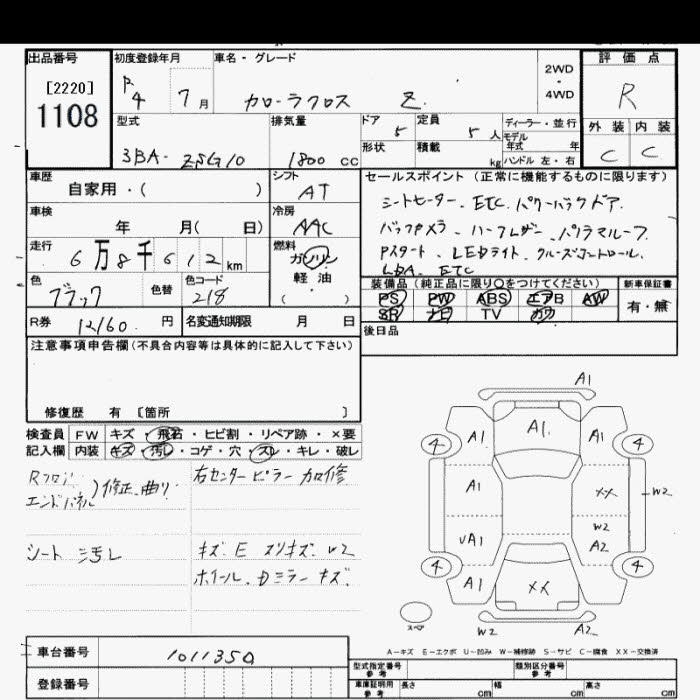 出品番号
[2220]
1108
初度登録年月
R4 7月
車名・グレード
カローラクロス Z
2WD
・
4WD
評価点
R
外装 内装
C C
型式
3BA- ZSG10
排気量
1800 cc
ドア
5
定員
5人
形状
積載
kg
ディーラー・並行
モデル
年式 年
ハンドル 左・右
車歴
自家用・( )
シフト
AT
車検
年 月( 日)
冷房
AAC
走行
6万8千612km
燃料
ガソリン
軽油
( )
色
ブラック
色替
色コード
218
R券
12160 円
名変通知期限 月 日
セールスポイント (正常に機能するものに限ります)
シートヒーター、ETC、パワーバックドア、
バックカメラ、ハーフレザー、パノラマルーフ
Pスタート、LEDライト、クルーズコントロール、
LDA、ETC
装備品 (純品正に限り○をつけてください)
PS PW ABS エアB AW
SR ナビ TV カワ
新車保証書
有・無
後日品
注意事項申告欄(不具合内容等は具体的に記入して下さい)
修復歴 有 [箇所 ]
検査員 FW キズ・飛石・ヒビ割・リペア跡・×要
記入欄 内装 キズ・汚レ・コゲ・穴・スレ・キレ・破レ
Rフロア
エンドパネル )修正、曲り
右センターピラー 加修
シート 汚レ
キズ、E スリキズ、W2
ホイール、Dミラー キズ、
A1
A1 A1. A1
4 4
A1 XX W2
W2
UA1 A2
4 4
A1 XX
スペア
W2 A2
A-キズ E-エクボ U-凹み W-補修跡 S-サビ C-腐食 XX-交換済
車台番号 1011350
登録番号
型式指定番号
参考
類別区分番号
参考
車庫証明用
参考
長さ cm 幅 cm 高さ cm